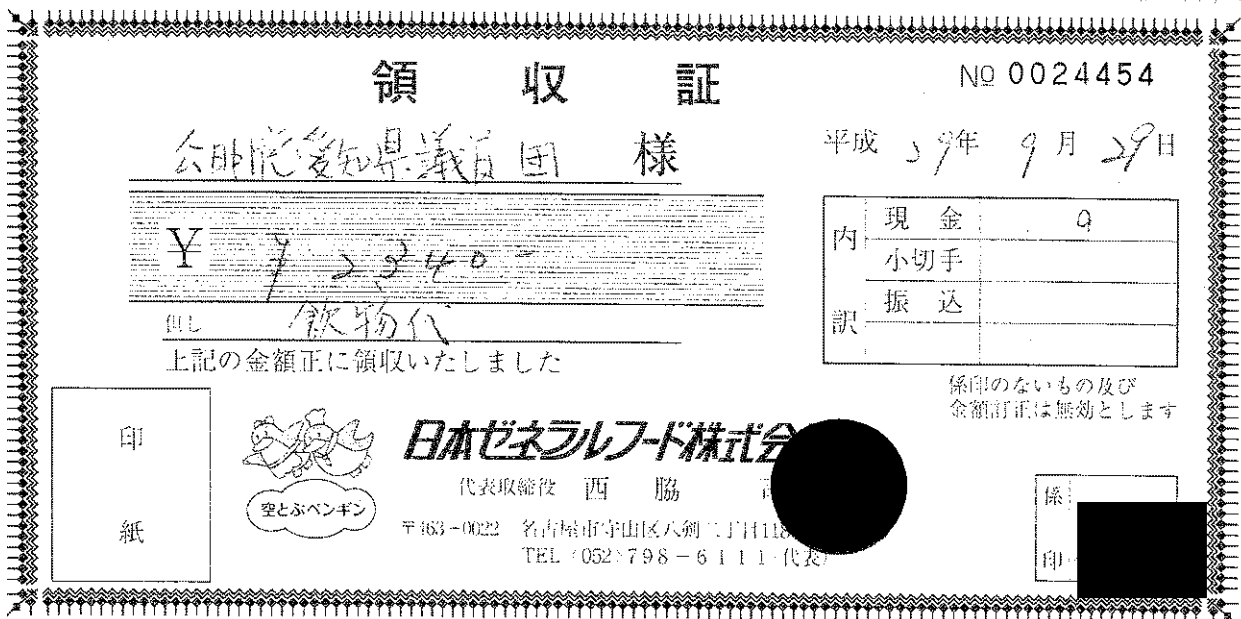 領収証
№ 0024454
公明党愛知県議員団 様
平成 29年 9月 29日
¥ 72,340-
但し 飲物代
上記の金額正に領収いたしました
内訳
現金
小切手
振込
係印のないもの及び
金額訂正は無効とします
印紙
空とぶペンギン
日本ゼネラルフード株式会
代表取締役 西脇
〒463-0022 名古屋市守山区八剣二丁目118
TEL (052) 798-6111 代表)
係印